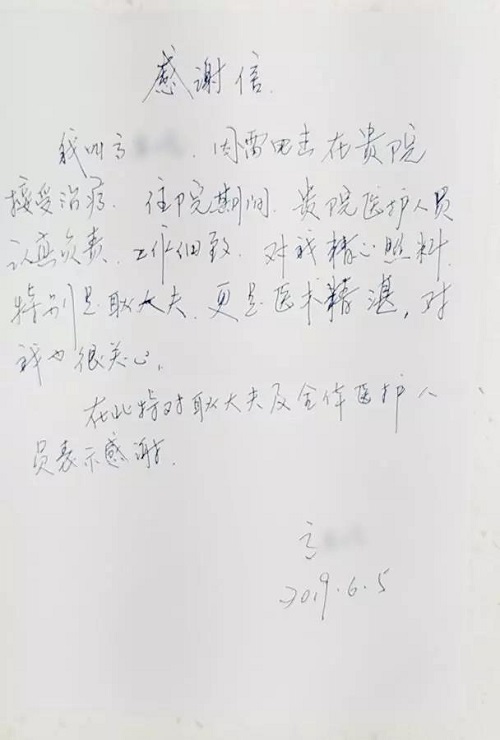 感谢信
我叫 因雷电击在贵院
接受治疗. 住院期间. 贵院医护人员
认真负责. 工作细致. 对我精心照料.
特别是耿大夫. 更是医术精湛, 对
我也很关心。
在此特对耿大夫及全体医护人
员表示感谢.
2019.6.5